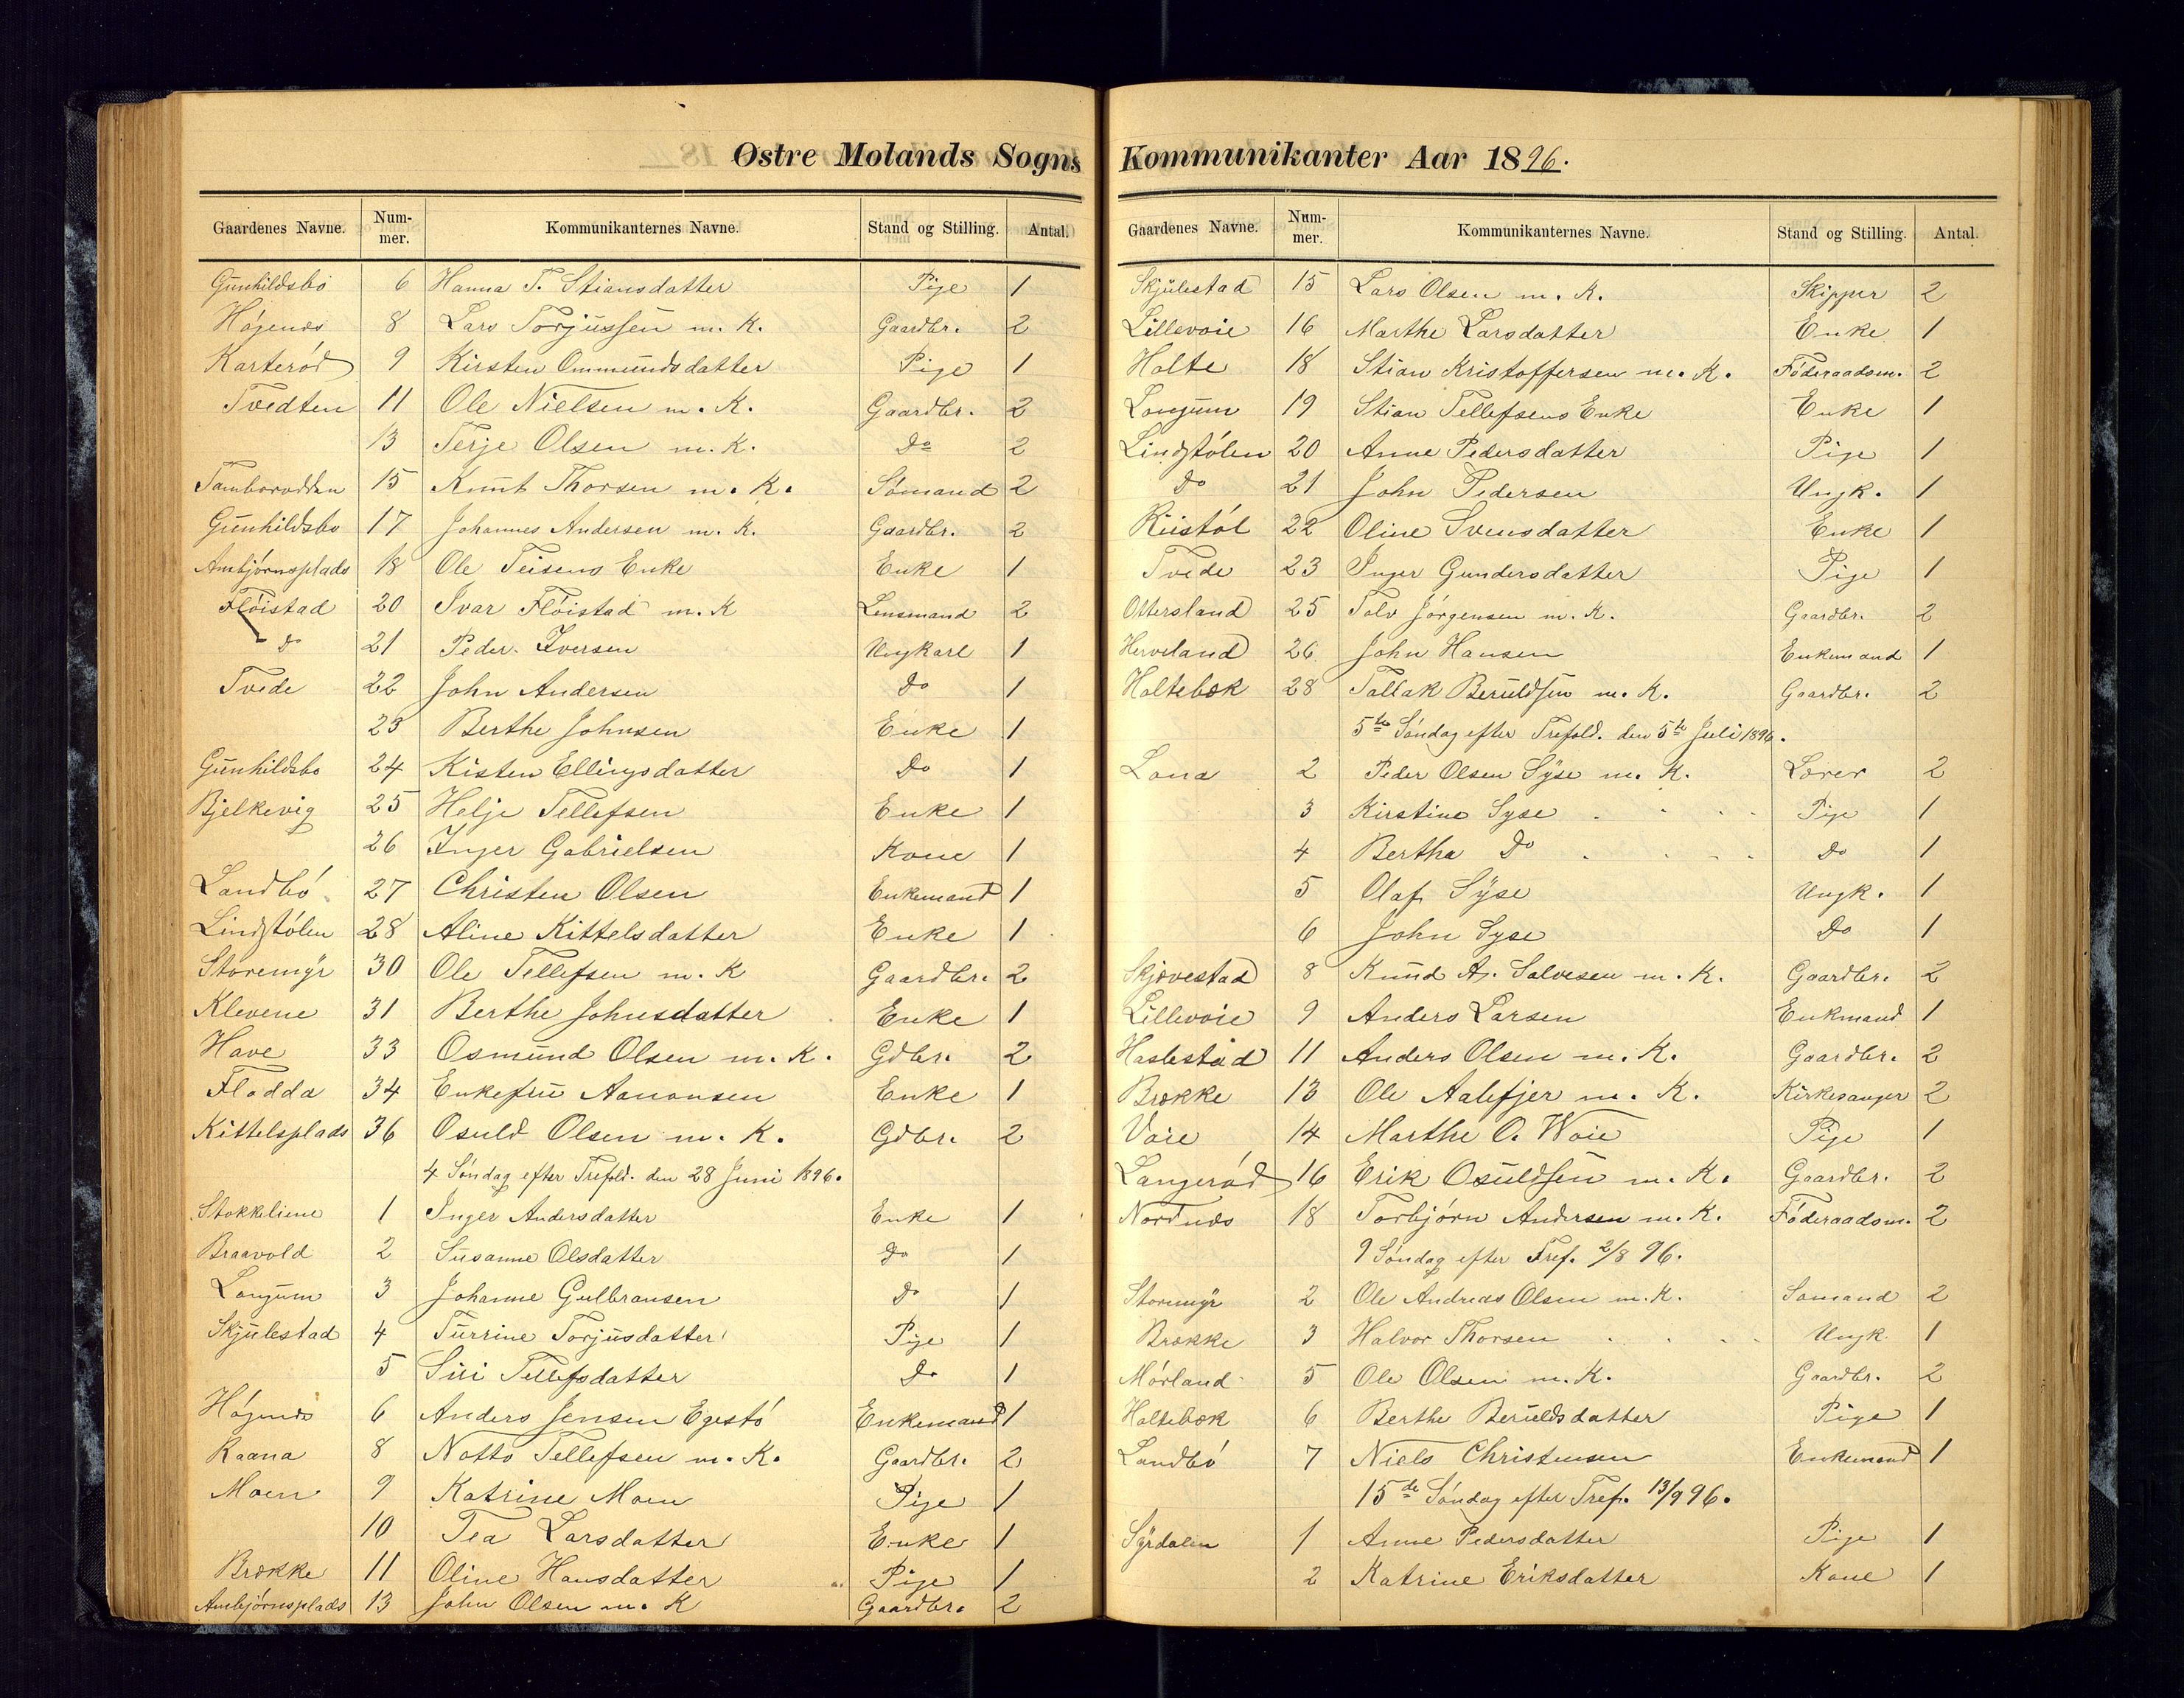 Østre Molands Sogns
Gaardenes Navne. Num-mer. Kommunikanternes Navne. Stand og Stilling. Antal.
Gunhildsbo 6 Hanna T. Stiansdatter Pige 1
Högenes 8 Lars Torjussen m. K. Gaardbr. 2
Karteröd 9 Kirsten Ommundsdatter Pige 1
Tvedten 11 Ole Nielsen m. K. Gaardbr. 2
13 Terje Olsen m. K. Do 2
Tamborodden 15 Knut Thorsen m. K. Sömand 2
Gunhildsbo 17 Johannes Andersen m. K. Gaardbr. 2
Ambjörnsplads 18 Ole Teisens Enke Enke 1
Flöistad 20 Ivar Flöistad m. K Lensmand 2
Do 21 Peder Iversen Ungkarl 1
Tvede 22 John Andersen Do 1
23 Berthe Johnsen Enke 1
Gunhildsbo 24 Kisten Ellingsdatter Do 1
Bjelkevig 25 Helje Tellefsen Enke 1
26 Inger Gabrielsen Kone 1
Landbö 27 Christen Olsen Enkemand 1
Lindstölen 28 Aline Kittelsdatter Enke 1
Storemyr 30 Ole Tellefsen m. K Gaardbr. 2
Klevene 31 Berthe Johnsdatter Enke 1
Have 33 Osmund Olsen m. K. Gdbr. 2
Flodda 34 Enkefru Aanonsen Enke 1
Kittelsplads 36 Osuld Olsen m. K. Gdbr. 2
4 Söndag efter Trefold. den 28 Juni 1896.
Stokkeliene 1 Inger Andersdatter Enke 1
Braavold 2 Susanne Olsdatter Do 1
Longum 3 Johanne Gulbransen Do 1
Skjulestad 4 Turrine Torjusdatter Pige 1
5 Siri Tellefsdatter Do 1
Högenes 6 Anders Jensen Egestö Enkemand 1
Raana 8 Notto Tellefsen m. K. Gaardbr. 2
Moen 9 Katrine Moen Pige 1
10 Tea Larsdatter Enke 1
Brække 11 Oline Hansdatter Pige 1
Ambjörnsplads 13 John Olsen m. K Gaardbr. 2
Kommunikanter Aar 1896.
Gaardenes Navne. Num-mer. Kommunikanternes Navne. Stand og Stilling. Antal.
Skjulestad 15 Lars Olsen m. K. Skipper 2
Lillevoie 16 Marthe Larsdatter Enke 1
Holte 18 Stian Kristoffersen m. K. Föderaadsm. 2
Longum 19 Stian Tellefsens Enke Enke 1
Lindstölen 20 Anne Pedersdatter Pige 1
Do 21 John Pedersen Ungk. 1
Riistöl 22 Oline Svensdatter Enke 1
Tvede 23 Inger Gundersdatter Pige 1
Ottersland 25 Tolv Jörgensen m. K. Gaardbr. 2
Herveland 26 John Hansen Enkemand 1
Holtebæk 28 Tallak Beruldsen m. K. Gaardbr. 2
5te Söndag efter Trefold. den 5te Juli 1896.
Lona 2 Peder Olsen Syse m. K. Lærer 2
3 Kirstine Syse Pige 1
4 Bertha Do Do 1
5 Olaf Syse Ungk. 1
6 John Syse Do 1
Skjævestad 8 Knud A. Salvesen m. K. Gaardbr. 2
Lillevoie 9 Anders Larsen Enkmand 1
Haslestad 11 Anders Olsen m. K. Gaardbr. 2
Brække 13 Ole Aalefjer m. K. Kirkesanger 2
Voie 14 Marthe O. Woie Pige 1
Langeröd 16 Erik Osuldsen m. K. Gaardbr. 2
Nordnes 18 Torbjörn Andersen m. K. Föderaadsm. 2
9 Söndag efter Tref. 2/8 96.
Storemyr 2 Ole Andreas Olsen m. K. Sömand 2
Brække 3 Halvor Thorsen Ungk. 1
Mörland 5 Ole Olsen m. K. Gaardbr. 2
Holtebæk 6 Berthe Beruldsdatter Pige 1
Landbö 7 Niels Christensen Enkemand 1
15de Söndag efter Tref. 13/9 96.
Syrdalen 1 Anne Pedersdatter Pige 1
2 Katrine Eriksdatter Kone 1